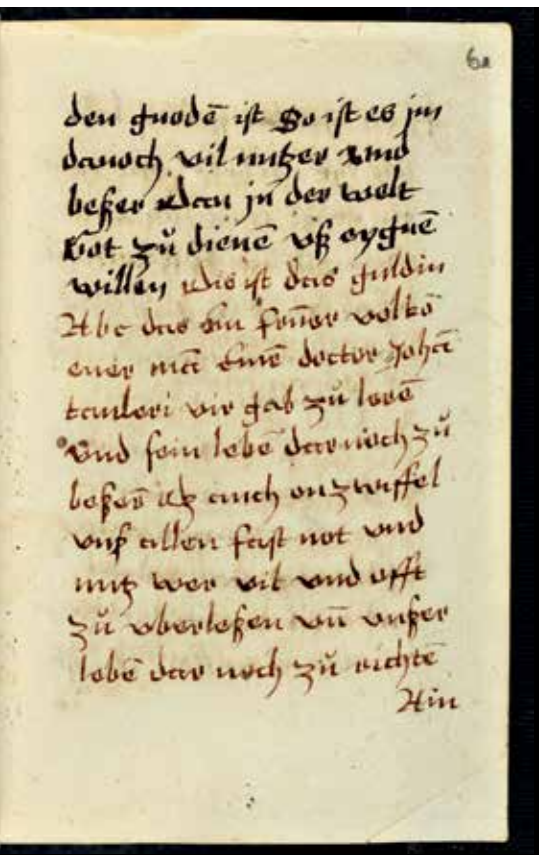 6a
den gnodē ist So ist es jm
danoch vil nutzer vnd
beßer dan jn der welt
Got zů dienē vß eygnē
willen Dis ist das guldin
Abc das ein frūer volkō
ener mā einē doctor Johā
tauleri vir gab zů lerē
vnd sein lebē dar noch zů
beßerē dz auch on zwiffel
vnß allen fast not vnd
nutz wer vil vnd offt
zů vberleßen vn̄ vnßer
lebē dar noch zů richtē
Ain